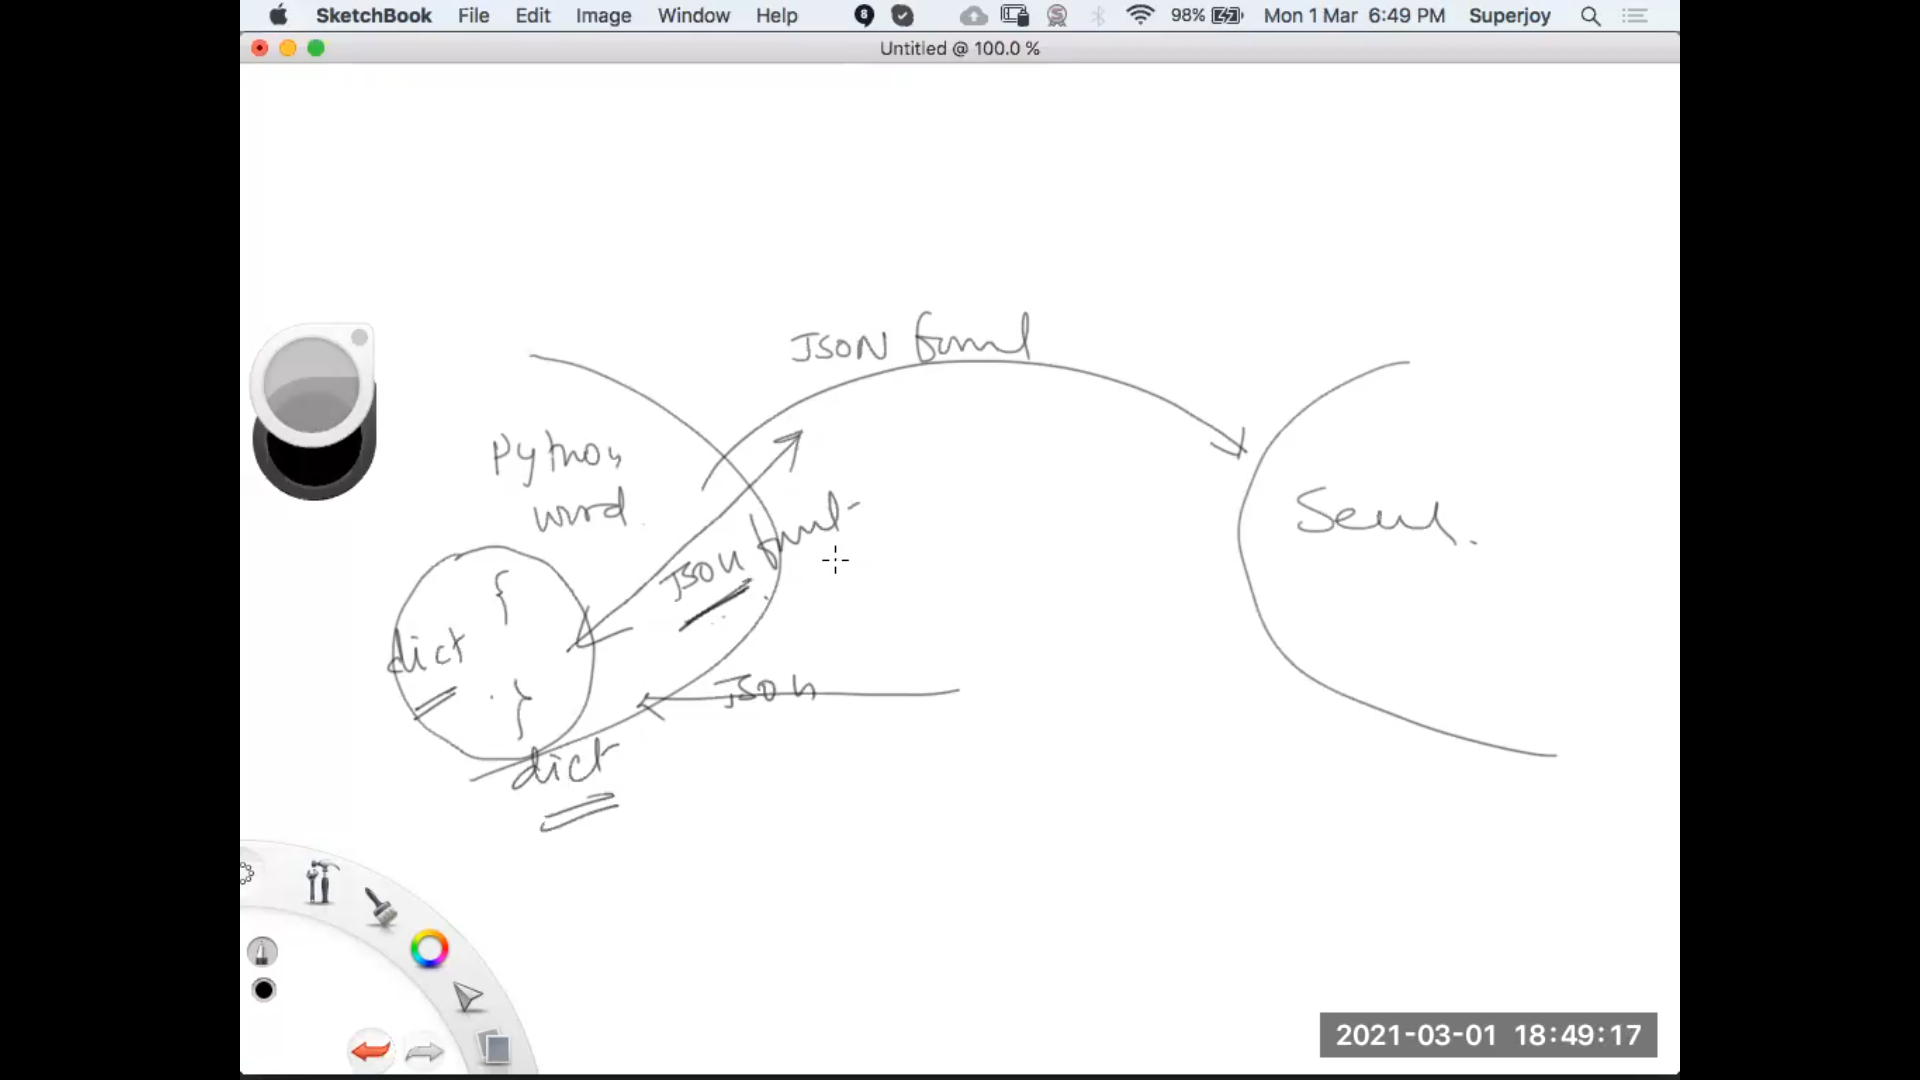 SketchBook File Edit Image Window Help 8 98% Mon 1 Mar 6:49 PM Superjoy
Untitled @ 100.0 %
JSON
Python
JSON
{
dict
}
JSON
dict
2021-03-01 18:49:17